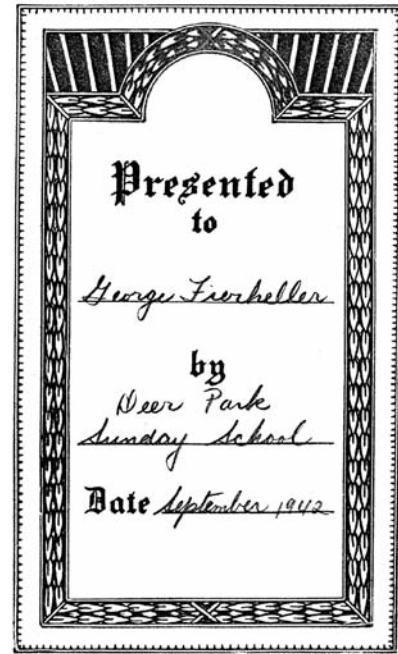 Presented
to
George Fierheller
by
Deer Park
Sunday School
Date September 1942